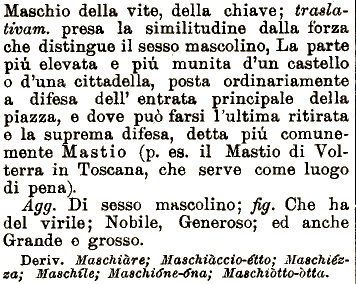 Maschio della vite, della chiave; trasla-
tivam. presa la similitudine dalla forza
che distingue il sesso mascolino, La parte
piú elevata e piú munita d'un castello
o d'una cittadella, posta ordinariamente
a difesa dell' entrata principale della
piazza, e dove può farsi l'ultima ritirata
e la suprema difesa, detta piú comune-
mente Mastio (p. es. il Mastio di Vol-
terra in Toscana, che serve come luogo
di pena).
Agg. Di sesso mascolino; fig. Che ha
del virile; Nobile, Generoso; ed anche
Grande o grosso.
Deriv. Maschiàre; Maschiàccio-étto; Maschiéz-
za; Maschíle; Maschióne-óna; Maschiòtto-òtta.